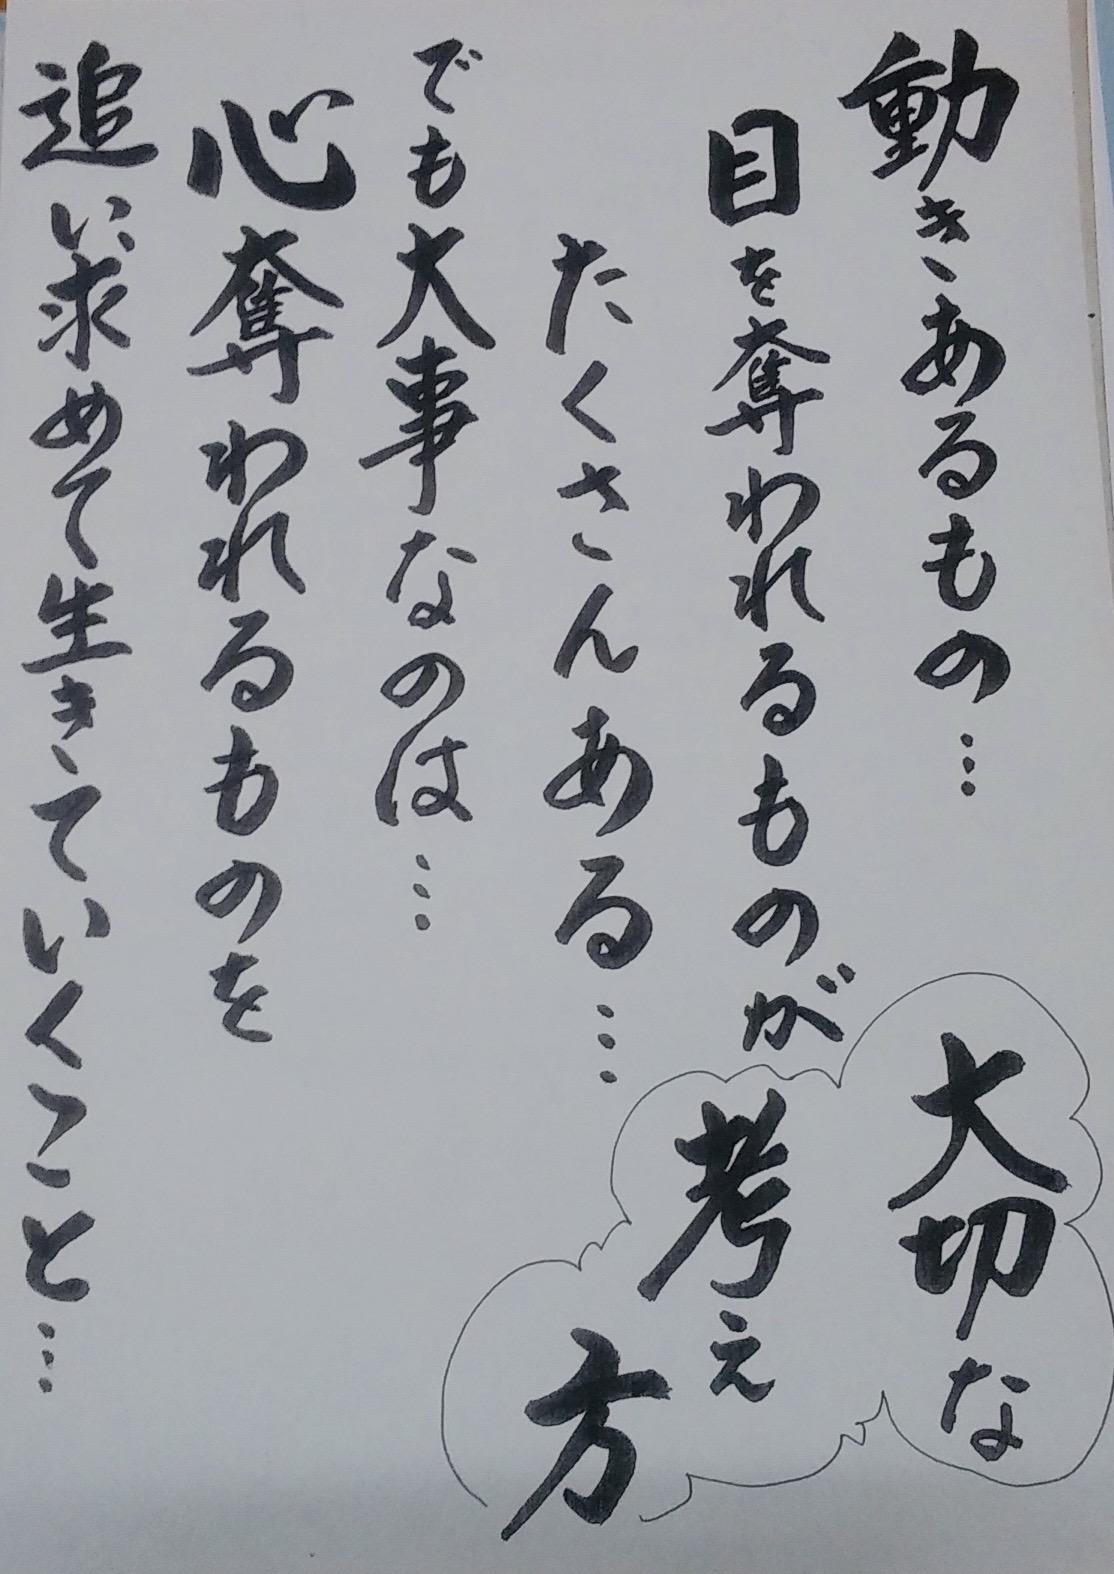 動きあるもの…
目を奪われるものが
たくさんある…
でも大事なのは…
心奪われるものを
追い求めて生きていくこと…
大切な
考え
方